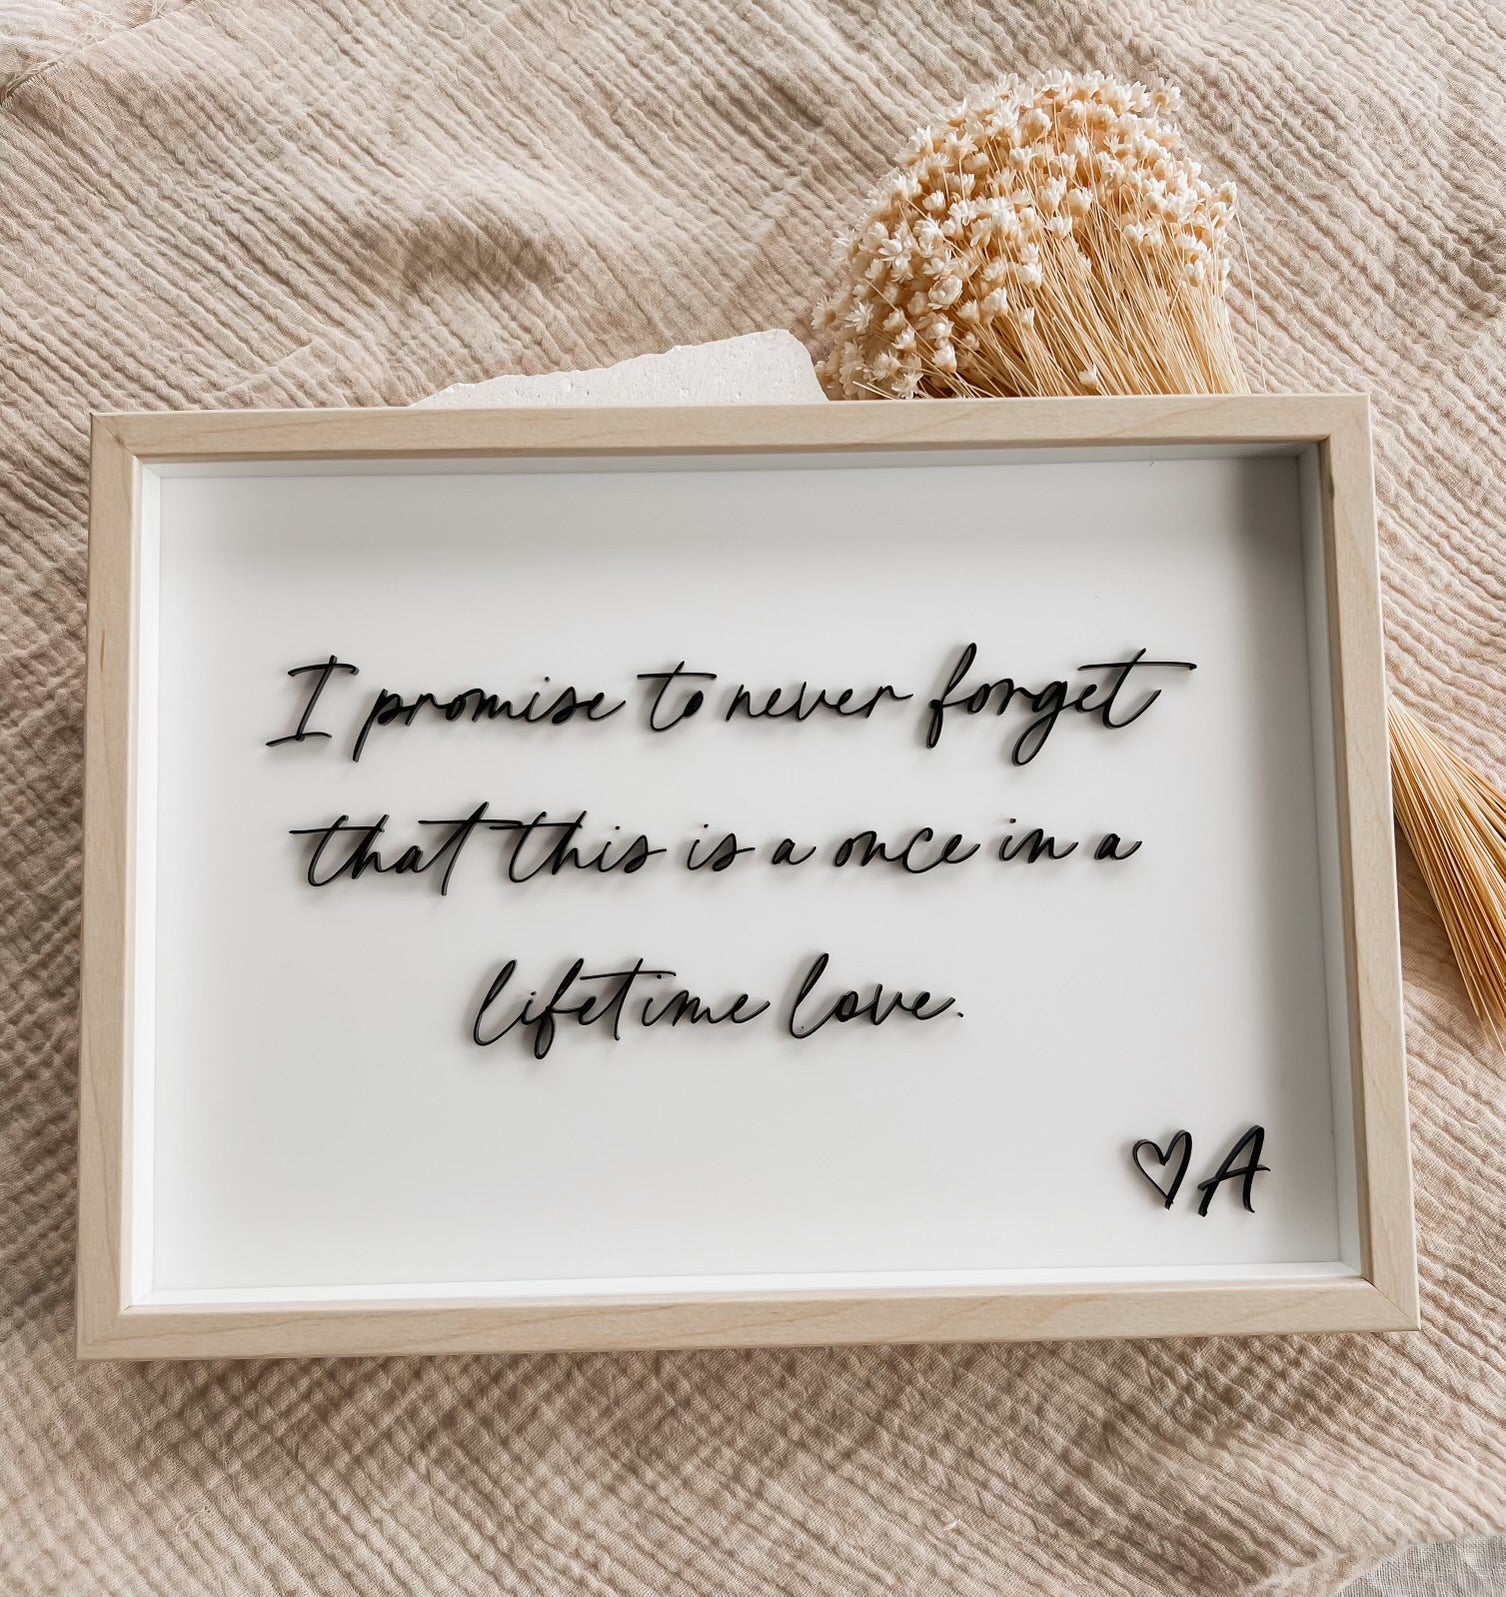 I promise to never forget
that this is a once in a
lifetime love.
♡A